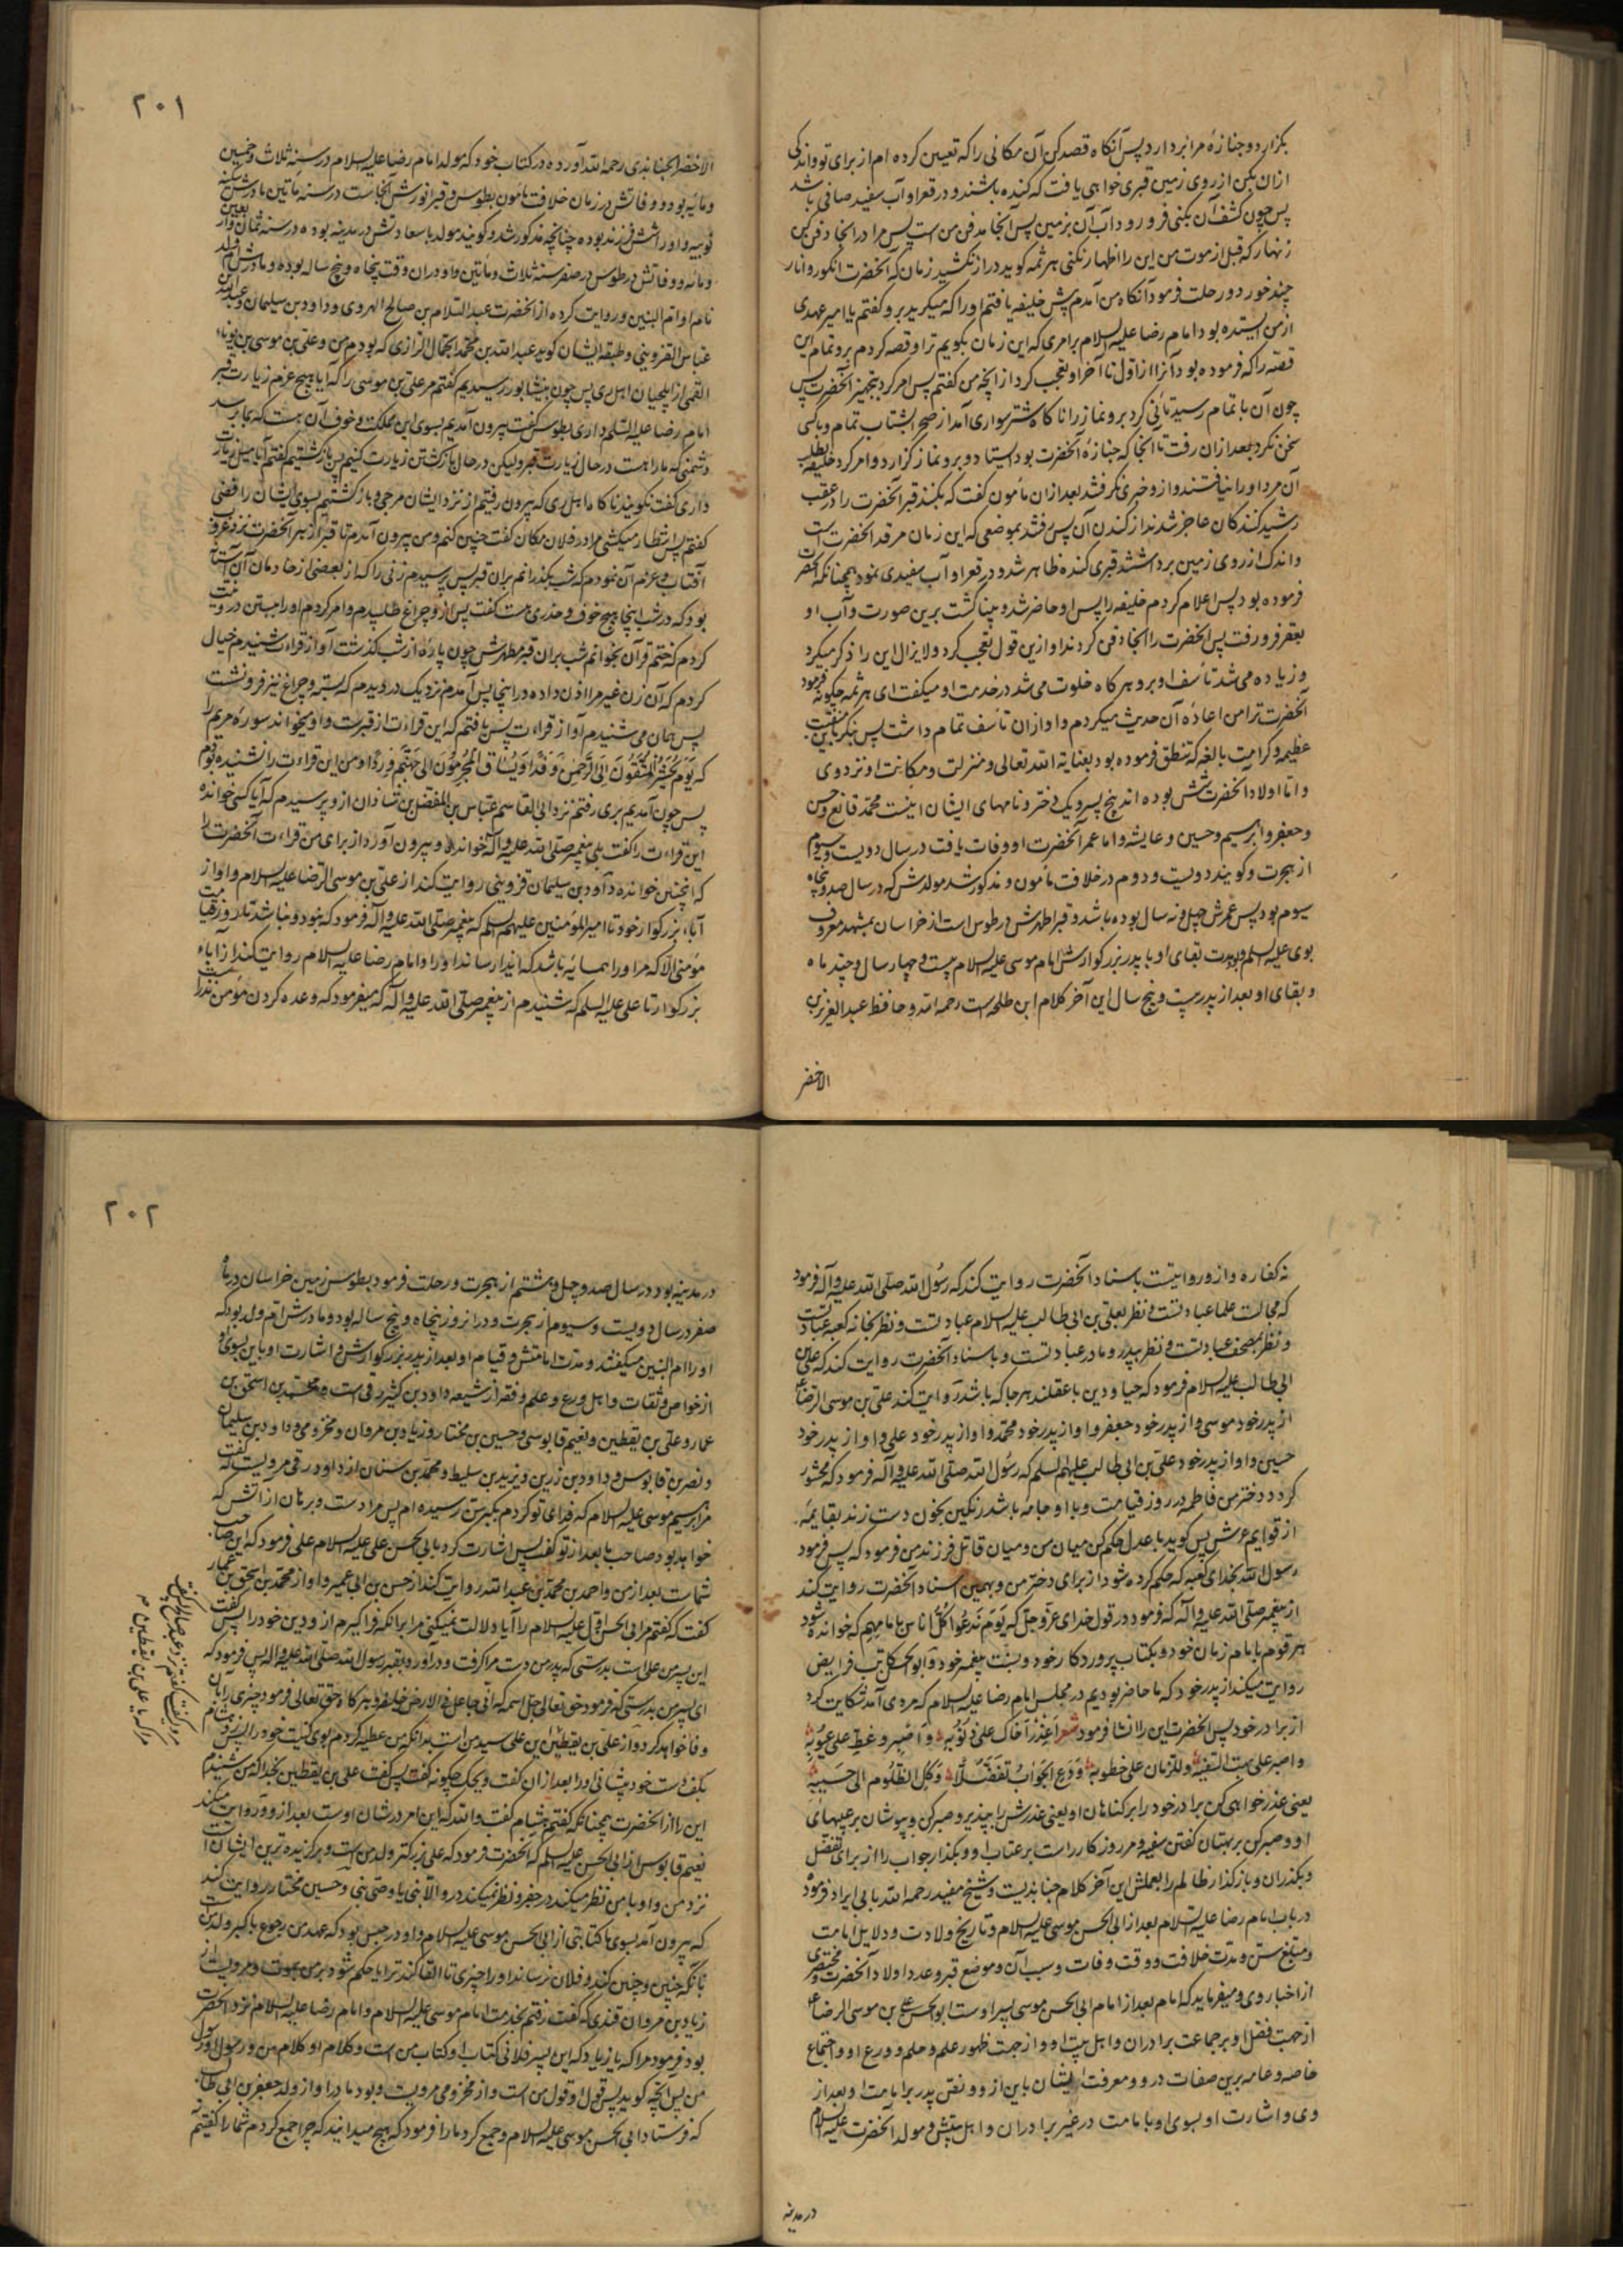 بگزارد و جنازهٔ مرا بردارد پس آنگاه قصد کن آن مکانی را که تعیین کرده‌ام از برای تو و اندکی
ازان بکن از روی زمین قبری خواهی یافت که کنده باشند و در قعر او آب سفید صافی باشد
پس چون کشف آن بکنی فرو رود آب آن بزمین پس آنجا مدفن من است پس مرا در انجا دفن کن
زنهار که قبل از موت من این را اظهار نکنی هرثمه گوید دراز نکشید زمان که آنحضرت انگور و انار
چند خورد و رحلت فرمود آنگاه من آمدم پیش خلیفه یافتم او را که میگرید برو گفتم یا امیر عهدی
از من ایستده بود امام رضا علیه السلام بر امری که این زمان بگویم ترا و قصه کردم برو تمام این
قصّه را که فرموده بود آنرا از اوّل تا آخر او تعجب کرد از آنچه من گفتم پس امر کرد بتجهیز آنحضرت پس
چون آن باتمام رسید تأنی کرد برو نماز را ناکاه شتر سواری آمد از صحرا بشتاب تمام و باکسی
سخن نکرد بعد ازان رفت تا آنجا که جنازهٔ آنحضرت بود ایستاد و برو نماز گزارد و امر کرد خلیفه بطلب
آن مرد او را نیافتند و ازو خبری نگرفتند بعد ازان مأمون گفت که بکنند قبر آنحضرت را در عقب
رشید کنندگان عاجز شدند از کندن آن پس رفتند بموضعی که این زمان مرقد آنحضرت است
و اندک از روی زمین برداشتند قبری کنده ظاهر شد و در قعر او آب سفیدی نمود همچنانکه آنحضرت
فرموده بود پس اعلام کردم خلیفه را پس او حاضر شد و بینا گشت برین صورت و آب او
بقعر فرو رفت پس آنحضرت را انجا دفن کردند او ازین قول تعجب کرد و لا یزال این را ذکر میکرد
و زیاده می‌شد تأسف او برو هر کاه خلوت می‌شد در خدمت او میگفت ای هرثمه چگونه فرمود
آنحضرت ترا من اعادهٔ آن حدیث میکردم و او ازان تأسف تمام داشت پس بنگر باین منقبت
عظیمه و کرامت بالغه که تنطق فرموده بود بعنایة الله تعالی و منزلت و مکانت او نزد وی
و امّا اولاد آنحضرت شش بوده‌اند پنج پسر و یک دختر و نامهای ایشان اینست محمّد قانع و حسن
و جعفر و ابرهیم و حسین و عایشه و اما عمر آنحضرت او وفات یافت در سال دویست و سیوم
از هجرت و گویند دویست و دوم در خلافت مأمون و مذکور شد مولدش که در سال صد و پنجاه
سیوم بود پس عمرش چهل و نه سال بوده باشد و قبر اطهرش در طوس است از خراسان بمشهد معروف
بوی علیه السلم و مدت بقای او با پدر بزرگوارش امام موسی علیه السلام بیست و چهار سال و چند ماه
و بقای او بعد از پدر بیست و پنج سال این آخر کلام ابن طلحه است رحمه الله و حافظ عبد العزیز بن
الاخضر
٢٠١
الاخضر الجنابذی رحمه الله آورده در کتاب خود که مولد امام رضا علیه السلام در سنه ثلاث و خمسین
و مائه بود و وفاتش در زمان خلافت مأمون بطوس و قبر انورش آنجاست در سنه مأتین مادرش سکینه
نوبیه و او را شش فرزند بوده چنانچه مذکور شد و گویند مولد با سعادتش در مدینه بوده در سنه ثمان و اربعین
و مائه و وفاتش در طوس در صفر سنه ثلاث و مأتین و او دران وقت پنجاه و پنج ساله بوده و مادرش ام ولد
نام او ام البنین و روایت کرده از آنحضرت عبد السلام بن صالح الهروی و داود بن سلیمان و عبد الله بن
عباس القزوینی و طبقه ایشان گوید عبد الله بن محمّد الجمال الرازی که بودم من و علی بن موسی بن بویه
القمی از ایلچیان اهل ری پس چون بنیشابور رسیدیم گفتم مر علی بن موسی را که ایا هیچ عزم زیارت قبر
امام رضا علیه السلم داری بطوس گفت بیرون آمدیم بسوی این مملکت و خوف آن هست که بما برسد
دشمنی که ما را هست در حال زیارت قبر ولیکن در حال بازگشتن زیارت کنیم پس بازگشتیم گفتم آیا میل زیارت
داری گفت نگویند ناکاه اهل ری که بیرون رفتیم از نزد ایشان مرجی و بازگشتیم بسوی ایشان رافضی
گفتم پس انتظار میکشی مرا در فلان مکان گفت چنین کنم و من بیرون آمدم تا قبر از هر آنحضرت نزد غروب
آفتاب و عزم آن نمودم که شب بگذرانم بران قبر پس پرسیدم زنی را که از بعضی از خادمان آن آستانه
بود که در شب اینجا هیچ خوف و حذری هست گفت پس ازو چراغ طلبیدم و امر کردم او را ببستن در و نیت
کردم که ختم قرآن بخوانم شب بران قبر مطهرش چون پارهٔ از شب گذشت آواز قراءت شنیدم خیال
کردم که آن زن غیر مرا اذن داده در اینجا پس آمدم نزدیک در دیدم که بسته و چراغ نیز فرو نشست
پس همان می‌شنیدم آواز قراءت پس یافتم که این قراءت از قبرست و او میخواند سورهٔ مریم را
که یَوْمَ یُحْشَرُ الْمُتَّقُونَ اِلَی الرَّحْمٰنِ وَفْدًا وَیُسَاقُ الْمُجْرِمُونَ اِلٰی جَهَنَّمَ وِرْدًا و من این قراءت را نشنیده بودم
پس چون آمدیم بری رفتم نزد ابی القاسم عبّاس بن المفضل بن شاذان ازو پرسیدم که آیا کسی خوانده
این قراءت را گفت بلی پیغمبر صلّی الله علیه و آله خوانده و بیرون آورد از برای من قراءت آنحضرت را
که اینچنین خوانده داود بن سلیمان قزوینی روایت کند از علی بن موسی الرّضا علیه السلام و او از
آباء بزرگوار خود تا امیر المؤمنین علیهم السلم که پیغمبر صلّی الله علیه و آله فرمود که نبود و نباشد تا روز قیامت
مؤمنی الّا که مر او را همسایهٔ باشد که ایذا رساند او را و امام رضا علیه السلام روایت کند از آباء
بزرگوار تا علی علیه السلم که شنیدم از پیغمبر صلّی الله علیه و آله که میفرمود که وعده کردن مؤمن نذر است
نه کفاره و ازو روایتست باسناد آنحضرت روایت کند که رسول الله صلّی الله علیه و آله فرمود
که مجالست علما عبادتست و نظر بعلی بن ابی طالب علیه السلام عبادتست و نظر بخانه کعبه عبادتست
و نظر بمصحف عبادتست و نظر بپدر و مادر عبادتست و باسناد آنحضرت روایت کند که علی بن
ابی طالب علیه السلام فرمود که حیا و دین با عقلند هر جا که باشد روایت کند علی بن موسی الرضا ع
از پدر خود موسی و از پدر خود جعفر و او از پدر خود محمّد و او از پدر خود علی و او از پدر خود
حسین و او از پدر خود علی بن ابی طالب علیهم السلم که رسول الله صلّی الله علیه و آله فرمود که محشور
گردد دختر من فاطمه در روز قیامت و با او جامه باشد رنگین بخون دست زند بقایمهٔ
از قوایم عرش پس گوید یا عدل حکم کن میان من و میان قاتل فرزند من فرمود که پس فرمود
رسول الله بخدای کعبه که حکم کرده شود از برای دختر من و بهمین اسناد آنحضرت روایت کند
از پیغمبر صلّی الله علیه و آله که فرمود در قول خدای عزّ و جلّ که یَوْمَ نَدْعُوا کُلَّ اُنَاسٍ بِاِمَامِهِم که خوانده شود
هر قوم بامام زمان خود و بکتاب پروردگار خود و بسنّت پیغمبر خود و ابو الحسن کاتب فرایض
روایت میکند از پدر خود که ما حاضر بودیم در مجلس امام رضا علیه السلام که مردی آمد شکایت کرد
از برادر خود پس آنحضرت این را انشا فرمود شعر اُعْذُرْ اَخَاکَ عَلٰی ذُنُوبِهٖ وَ اصْبِرْ وَ غَطِّ عَلٰی عُیُوبِهٖ
و اصبر علی بهت السفیه و للزمان علی خطوبه وَ دَعِ الْجَوَابَ تَفَضُّلًا وَ کِلِ الظَّلُومَ اِلٰی حَسِیبِهٖ
یعنی عذر خواهی کن برادر خود را بر گناهان او یعنی عذرش را بپذیر و صبر کن و بپوشان بر عیبهای
او و صبر کن بر بهتان گفتن سفیه و مر روزگار راست بر عتاب او و بگذار جواب را از برای تفضّل
و بگذران و بازگذار ظالم را بعملش این آخر کلام جنابذیست و شیخ مفید رحمه الله بابی ایراد فرموده
در باب امام رضا علیه السلام بعد از ابی الحسن موسی علیه السلام و تاریخ ولادت و دلایل امامت
و مبلغ سن و مدّت خلافت و وقت وفات و سبب آن و موضع قبر و عدد اولاد آنحضرت و مختصری
از اخبار وی و میفرماید که امام بعد از امام ابی الحسن موسی پسر اوست ابو الحسن علی بن موسی الرضا ع
از جهت فضل او بر جماعت برادران و اهل بیت او و از جهت ظهور علم و حلم و ورع او و اجتماع
خاصه و عامه برین صفات در و و معرفت ایشان باین ازو و نص پدر بر امامت او بعد از
وی و اشارت او بسوی او بامامت در غیر برادران و اهل بیتش و مولد آنحضرت علیه السلام
در مدینه
٢٠٢
در مدینه بود در سال صد و چهل و هشتم از هجرت و رحلت فرمود بطوس زمین خراسان در ماه
صفر در سال دویست و سیوم از هجرت و در انروز پنجاه و پنج ساله بود و مادرش ام ولد بود که
او را ام البنین میگفتند و مدت امامتش و قیام او بعد از پدر بزرگوارش و اشارت او باین بسوی او
از خواص و ثقات و اهل ورع و علم و فقه از شیعه داود بن کثیر رقی است و محمّد بن اسحق بن
عمار و علی بن یقطین و نعیم قابوسی و حسین بن مختار و زیاد بن مروان و مخزومی و داود بن سلیمان
و نصر بن قابوس و داود بن زرین و یزید بن سلیط و محمّد بن سنان از داود رقی مرویست که گفت
مر ابرهیم موسی علیه السلام که فدای تو گردم بکبر سن رسیده‌ام پس مرا دست و برهان از آتش که
خواهد بود صاحب ما بعد از تو گفت پس اشارت کرد بابی الحسن علی علیه السلام علی فرمود که این صاحب
شماست بعد از من و احمد بن محمّد بن عبد الله روایت کند از حسن بن ابی عمیر و او از محمّد بن اسحق بن عمار
گفت که گفتم مر ابی الحسن اوّل علیه السلام را آیا دلالت نمیکنی مرا برانکه فراگیرم ازو دین خود را پس گفت
این پسر من علی است بدرستی که پدر من دست مرا گرفت و درآورد بقبر رسول الله صلّی الله علیه و آله پس فرمود که
ای پسر من بدرستی که فرمود حق تعالی جل اسمه که انّی جاعل فی الارض خلیفة و هر کاه حق تعالی فرمود چیزی را بآن
وفا خواهد کرد و از علی بن یقطین این علی سید من است برانکه من عطیه کردم بوی کنیت خود را پس هشام
بکف دست خود پیشانی او را بعد ازان گفت ویحک چگونه گفت پس گفت علی بن یقطین بخدا که من شنیدم
این را از آنحضرت همچنانکه گفتم هشام گفت و الله که این امر در شان اوست بعد از و و روایت میکند
نعیم قابوس از ابی الحسن علیه السلم که آنحضرت فرمود که علی بزرکتر ولد من است و برگزیده‌ترین ایشان است
نزد من و او با من نظر میکند در جفر و نظر نمیکند در و الّا نبی یا وصی نبی و حسین مختار روایت کند
که بیرون آمد بسوی ما کتابتی از ابی الحسن موسی علیه السلام و او در حبس بود که عهد من رجوع باکبر ولد من است
بانکه چنین و چنین کند و فلان نرساند او را چیزی تا القا کند ترا یا حکم شود بر من بموت و مرویست از
زیاد بن مروان قندی که گفت رفتم بخدمت امام موسی علیه السلام و امام رضا علیه السلام نزد آنحضرت
بود فرمود مرا که یا زیاد که این پسر فلانی کتاب او کتاب من است و کلام او کلام من و رسول او رسول
من پس آنچه گوید پس قول او قول من است و از مخزومی مرویست و بود مادر او از ولد جعفر بن ابی طالب
که فرستاد ابی الحسن موسی علیه السلام و جمع کرد ما را فرمود که هیچ میدانید که چرا جمع کردم شما را گفتیم